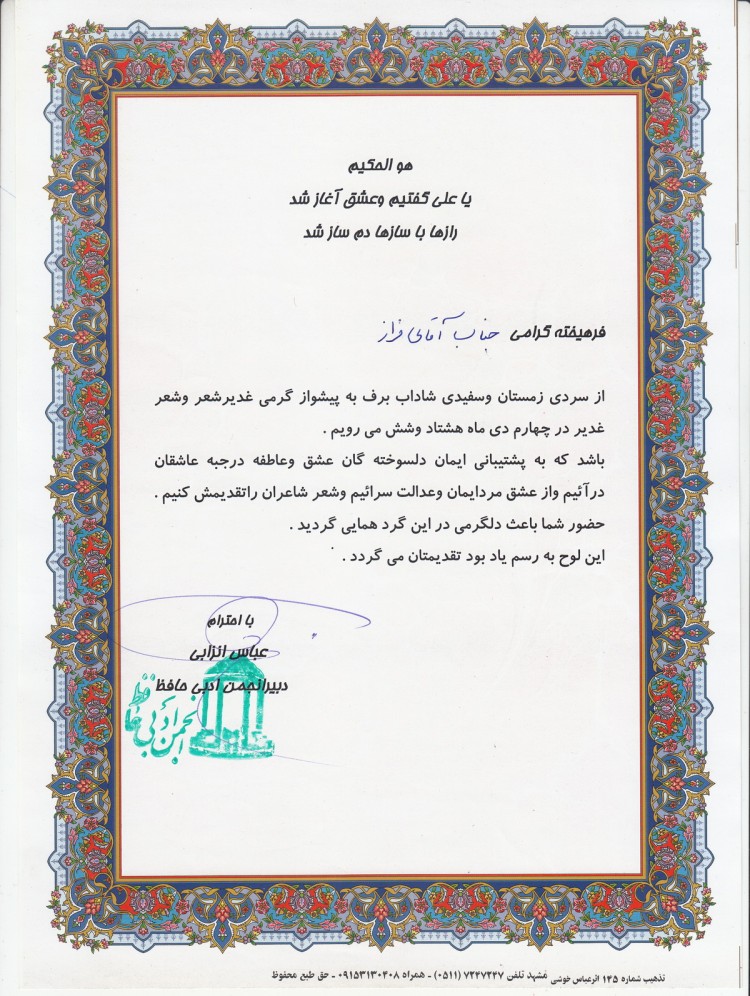 هو الحکیم
یا علی گفتیم وعشق آغاز شد
رازها با سازها دم ساز شد
فرهیفته گرامی جناب آقای فراز
از سردی زمستان وسفیدی شاداب برف به پیشواز گرمی غدیرشعر وشعر
غدیر در چهارم دی ماه هشتاد وشش می رویم .
باشد که به پشتیبانی ایمان دلسوخته گان عشق وعاطفه درجبه عاشقان
درآئیم واز عشق مردایمان وعدالت سرائیم وشعر شاعران راتقدیمش کنیم .
حضور شما باعث دلگرمی در این گرد همایی گردید .
این لوح به رسم یاد بود تقدیمتان می گردد .
با احترام
عباس انزابی
دبیرانجمن ادبی حافظ
انجمن ادبی حافظ
تذهیب شماره ۱۴۵ اثرعباس خوشی مشهد تلفن ۷۲۴۷۲۴۷ (۰۵۱۱) - همراه ۰۹۱۵۳۱۳۰۴۰۸ - حق طبع محفوظ